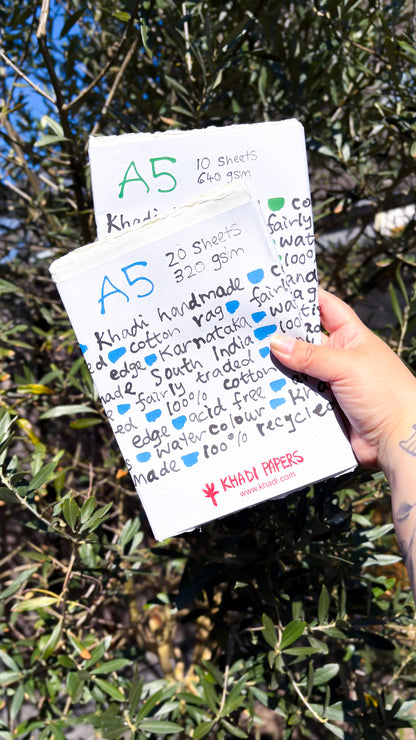 A5
10 Sheets
640 gsm
Khadi
fairly
A5
20 Sheets
320 gsm
Khadi handmade
ed cotton rag fairl
edge Karnataka
made South India 100%
ed fairly traded
100% cotton
edge acid free Kh
s water colour
made 100% recycled
KHADI PAPERS
www.khadi.com